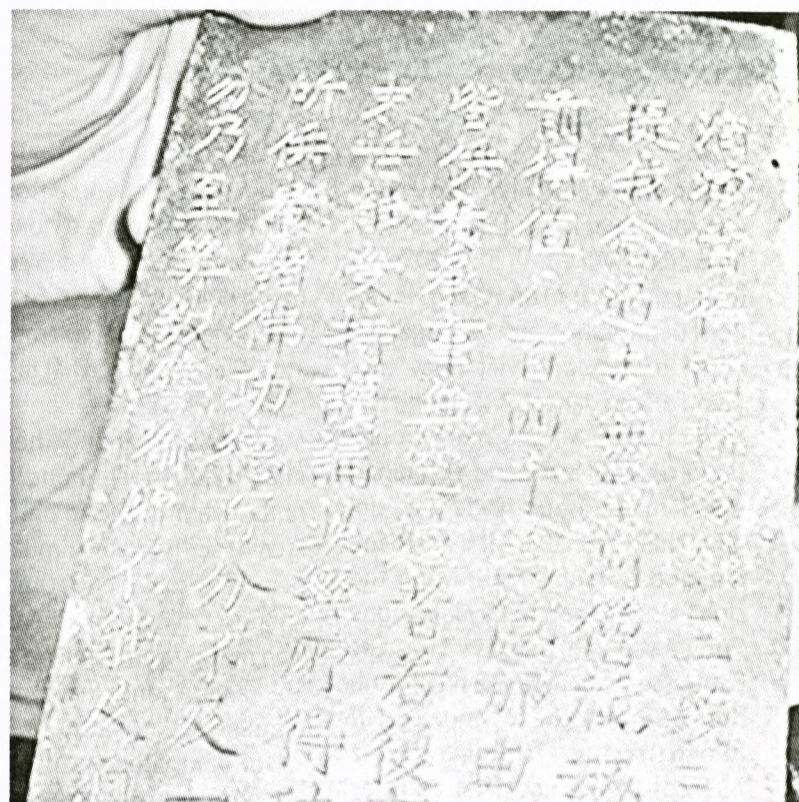 消滅當得阿耨多羅三藐三
提我念過去無量阿僧祇劫
前得值八百四千萬億那由
皆供養承事無空過者若復
末世能受持讀誦此經所得
所供養諸佛功德百分不及一
分乃至筭數譬喻所不能及